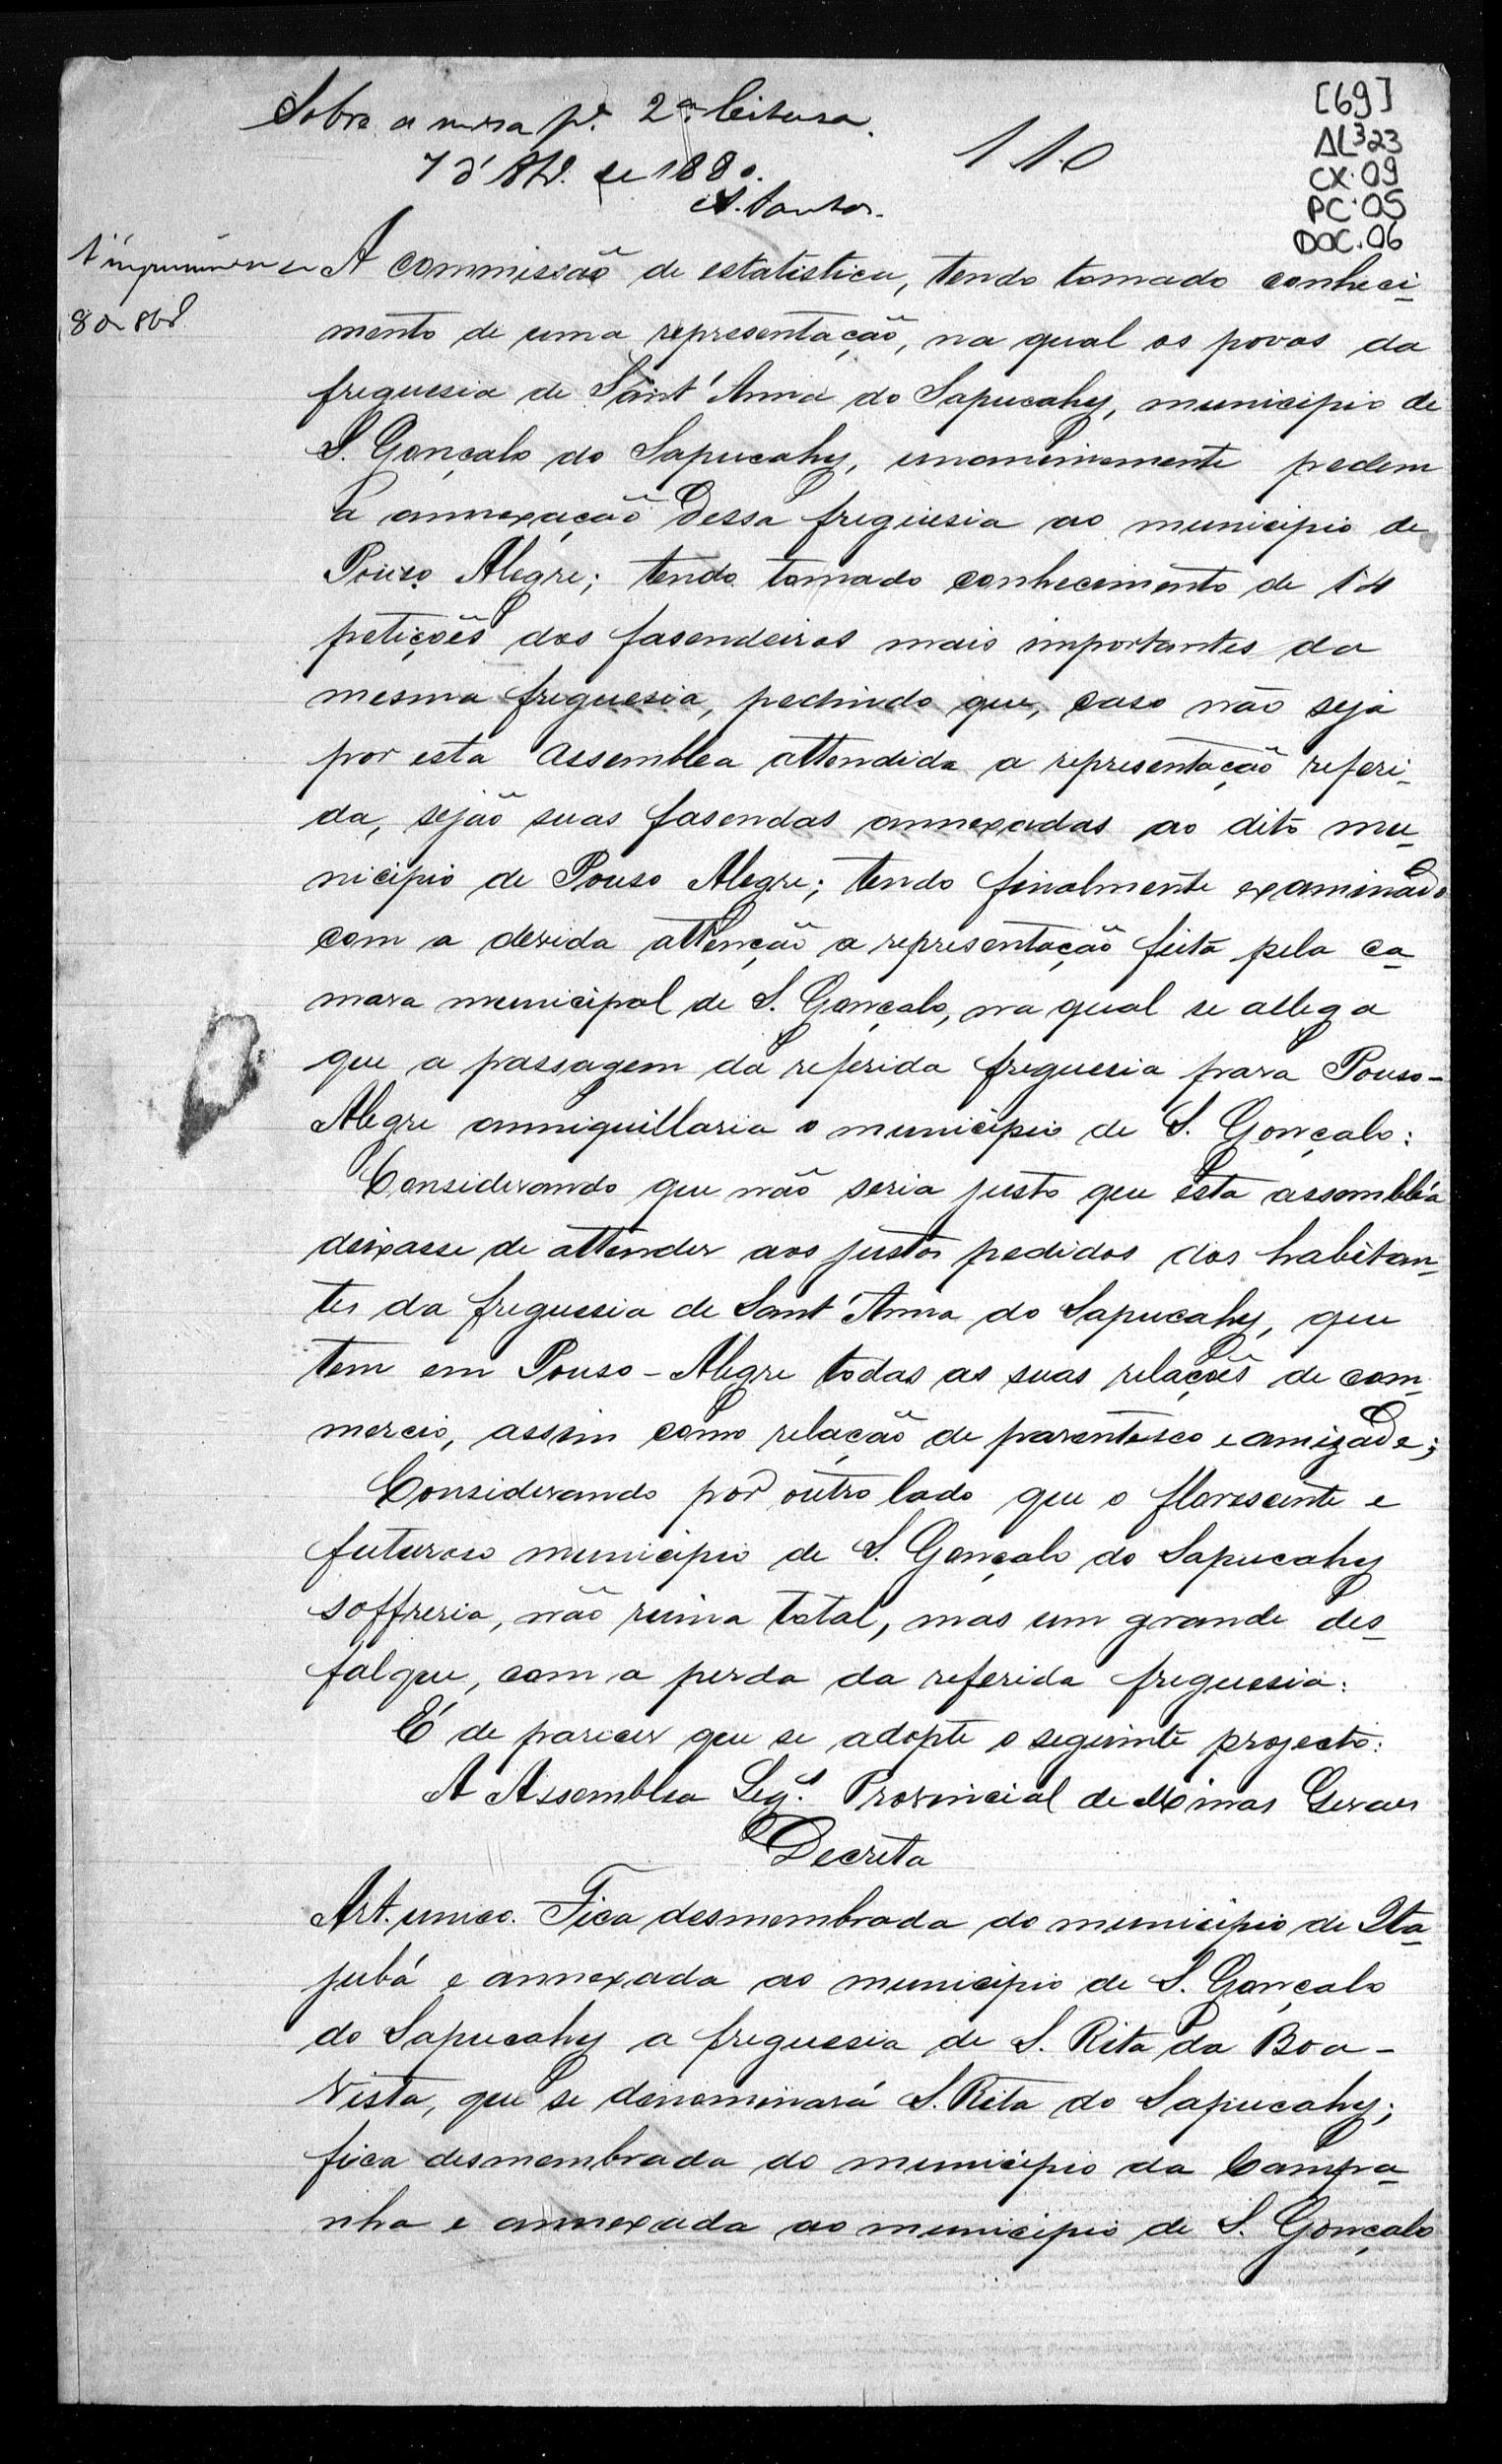 Sobre a mesa pª. 2ª leitura.
7 d' 8bº. de 1880.
A. Santos.
110
[69]
AL323
CX.09
PC.05
DOC.06
A imprimir
8 de 8bº
A commissão de estatistica, tendo tomado conheci-
mento de uma representação, na qual os povos da
freguesia de Sant'Anna do Sapucahy, municipio de
S. Gonçalo do Sapucahy, unanimemente pedem
a annexação dessa freguesia ao municipio de
Pouso Alegre; tendo tomado conhecimento de 14
petições dos fasendeiros mais importantes da
mesma freguesia, pedindo que, caso não seja
por esta assemblea attendida a representação referi-
da, sejão suas fasendas annexadas ao dito mu-
nicipio de Pouso Alegre; tendo finalmente examinado
com a devida attenção a representação feita pela ca-
mara municipal de S. Gonçalo, na qual se allega
que a passagem da referida freguesia para Pouso-
Alegre anniquillaria o municipio de S. Gonçalo:
Considerando que não seria justo que esta assembléa
deixasse de attender aos justos pedidos dos habitan-
tes da freguesia de Sant'Anna do Sapucahy, que
tem em Pouso-Alegre todas as suas relações de com-
mercio, assim como relação de parentesco e amizade;
Considerando por outro lado que o florescente e
futuroso municipio de S. Gonçalo do Sapucahy
soffreria, não ruina total, mas um grande des-
falque, com a perda da referida freguesia:
É de parecer que se adopte o seguinte projecto:
A Assemblea Leg.ª Provincial de Minas Geraes
Decreta
Art. unico. Fica desmembrada do municipio de Ita-
jubá e annexada ao municipio de S. Gonçalo
do Sapucahy a freguesia de S. Rita da Boa-
Vista, que se denominará S. Rita do Sapucahy;
fica desmembrada do municipio da Campa-
nha e annexada ao municipio de S. Gonçalo